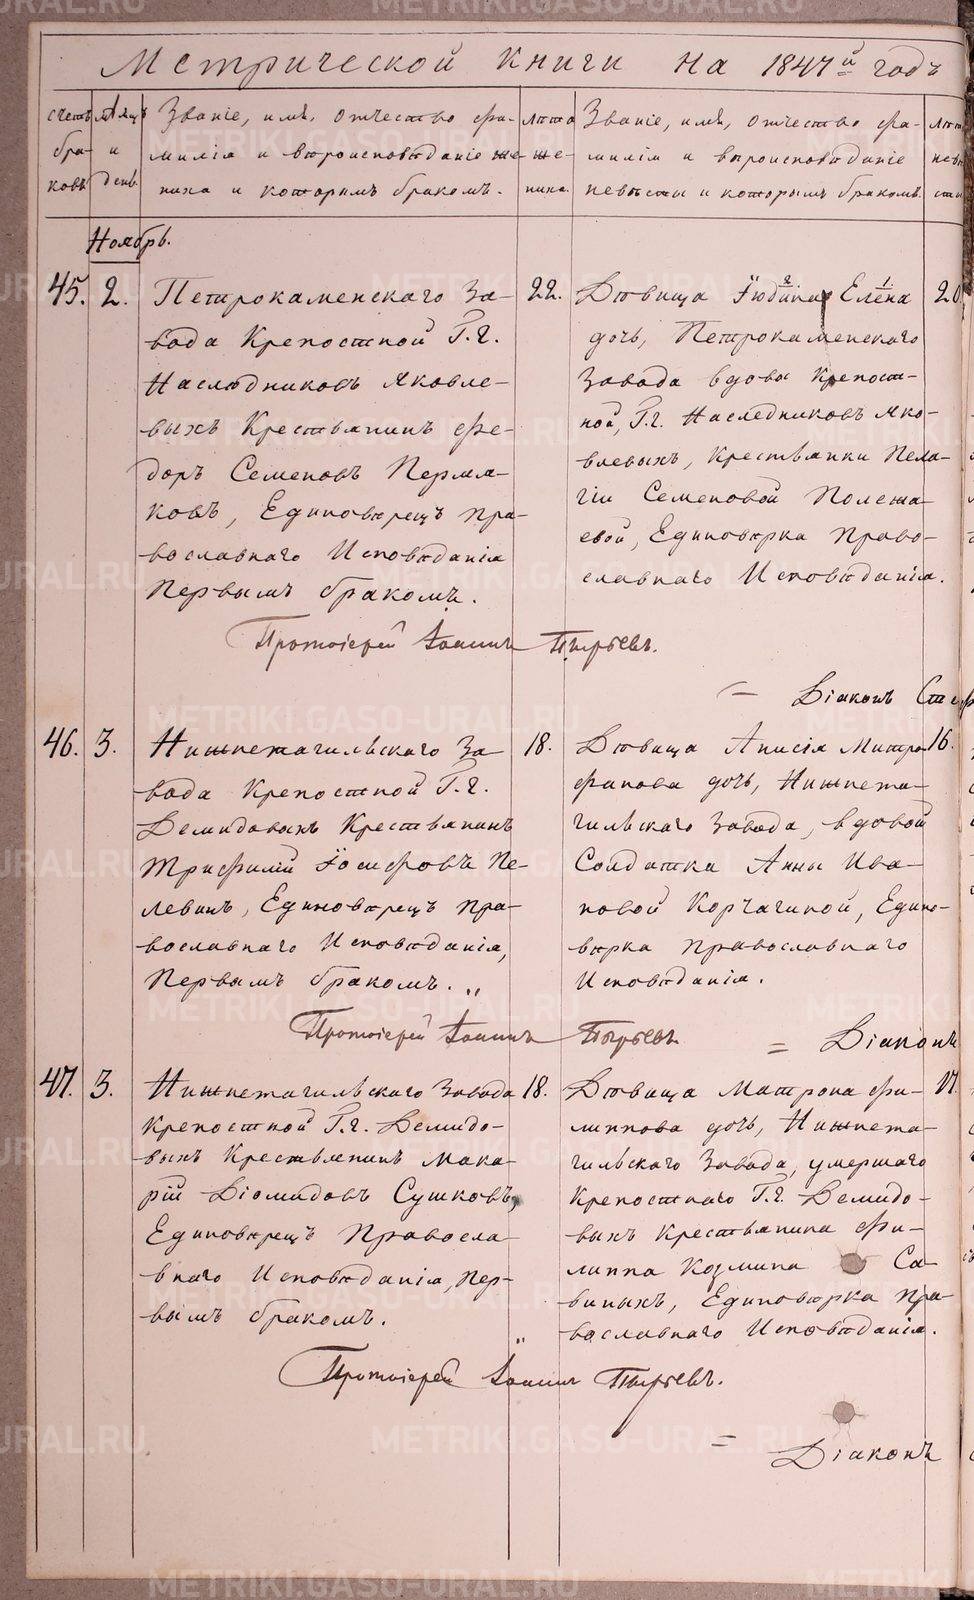 Метрической книги на 1847й годъ
счетъ браковъ
м–цъ и день
Званіе, имя, отчество фа-
милія и вѣроисповѣданіе же-
ниха и которымъ бракомъ.
лѣта же-
ниха.
Званіе, имя, отчество фа-
милія и вѣроисповѣданіе
невѣсты и которымъ бракомъ.
лѣт
невѣ
сты
Ноябрь.
45. 2.
Петрокаменскаго За-
вода Крепостной Г.г.
Наслѣдниковъ Яковле-
выхъ Крестьянинъ Фе-
доръ Семеновъ Пермя-
ковъ, Единовѣрецъ пра-
вославнаго Исповѣданія
Первымъ бракомъ.
22.
Дѣвица Елена
дочь, Петрокаменскаго
Завода вдовы Крепост-
ной, Г.г. Наследниковъ Яко-
влевыхъ, Крестьянки Пела-
гіи Семеновой Полета-
евой, Единовѣрка Право-
славнаго Исповѣданія.
20
Протоіерей Іоаннъ Пырьевъ.
= Діаконъ Стеф
46. 3.
Нижнетагильскаго За-
вода Крепостной Г.г.
Демидовыхъ Крестьянинъ
Трифилій Іосифовъ Пе-
левинъ, Единовѣрецъ пра-
вославнаго Исповѣданія,
Первымъ бракомъ. „
18.
Дѣвица Анисія Митро-
фанова дочь, Нижнета-
гильскаго Завода, вдовой
Солдатка Анны Ива-
новой Корчагиной, Едино-
вѣрка православнаго
Исповѣданія.
16.
Протоіерей Іоаннъ Пырьевъ.
= Діаконъ
47. 3.
Нижнетагильскаго Завода
Крепостной Г.г. Демидо-
выхъ Крестьенинъ Мака-
рій Діомидовъ Сушковъ,
Единовѣрецъ Правосла-
внаго Исповѣданія, Пер-
вымъ бракомъ. „
18.
Дѣвица Матрона Фи-
липпова дочь, Нижнета-
гильскаго Завода, умершаго
Крепостнаго Г.г. Демидо-
выхъ Крестьянина Фи-
липпа Козмина Са-
виныхъ, Единовѣрка пра-
вославнаго Исповѣданія.
17.
Протоіерей Іоаннъ Пырьевъ.
= Діаконъ
METRIKI.GASO-URAL.RU